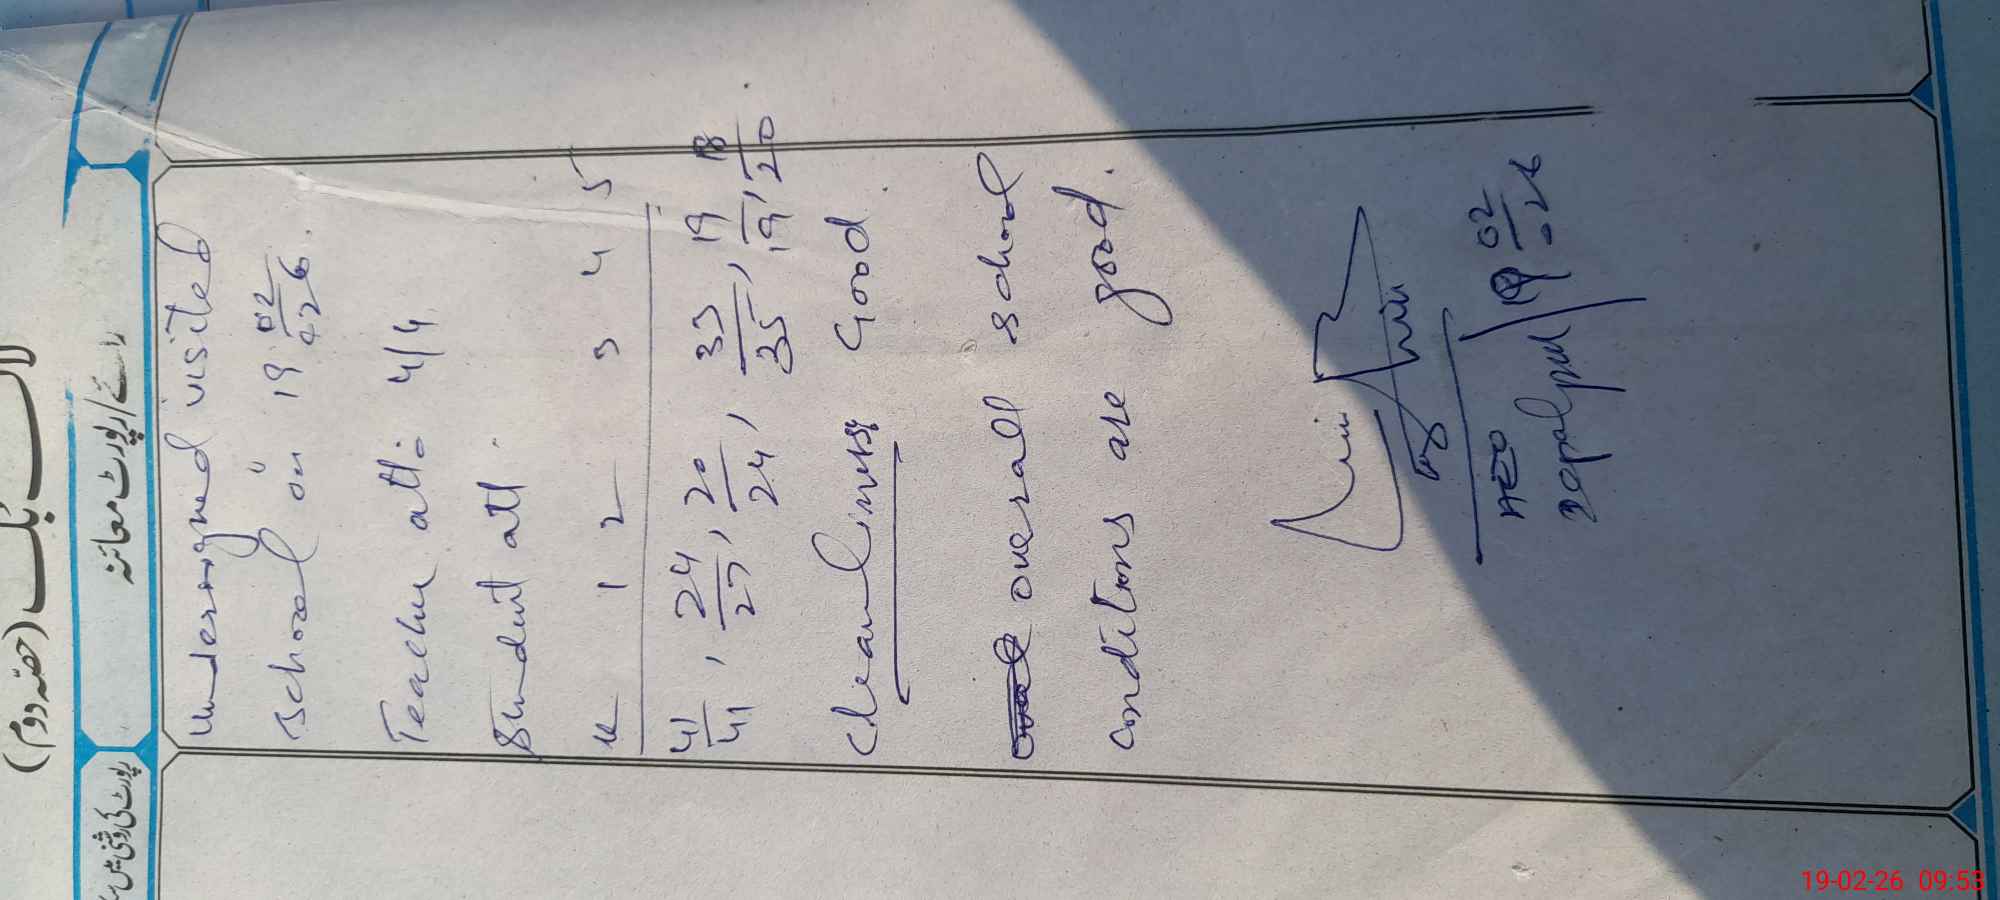 لاگ بک (حصہ دوم)
رائے/رپورٹ معائنہ
رپورٹ کی روشنی میں
undersigned visited
school on 19 02/2026.
Teacher att: 4/4
Student att.
K 1 2 3 4 5
41/41, 24/27, 20/24, 33/35, 19/19, 18/20
Cleanliness Good.
overall school
conditions are good.
AEO
19 02/26
19-02-26 09:53